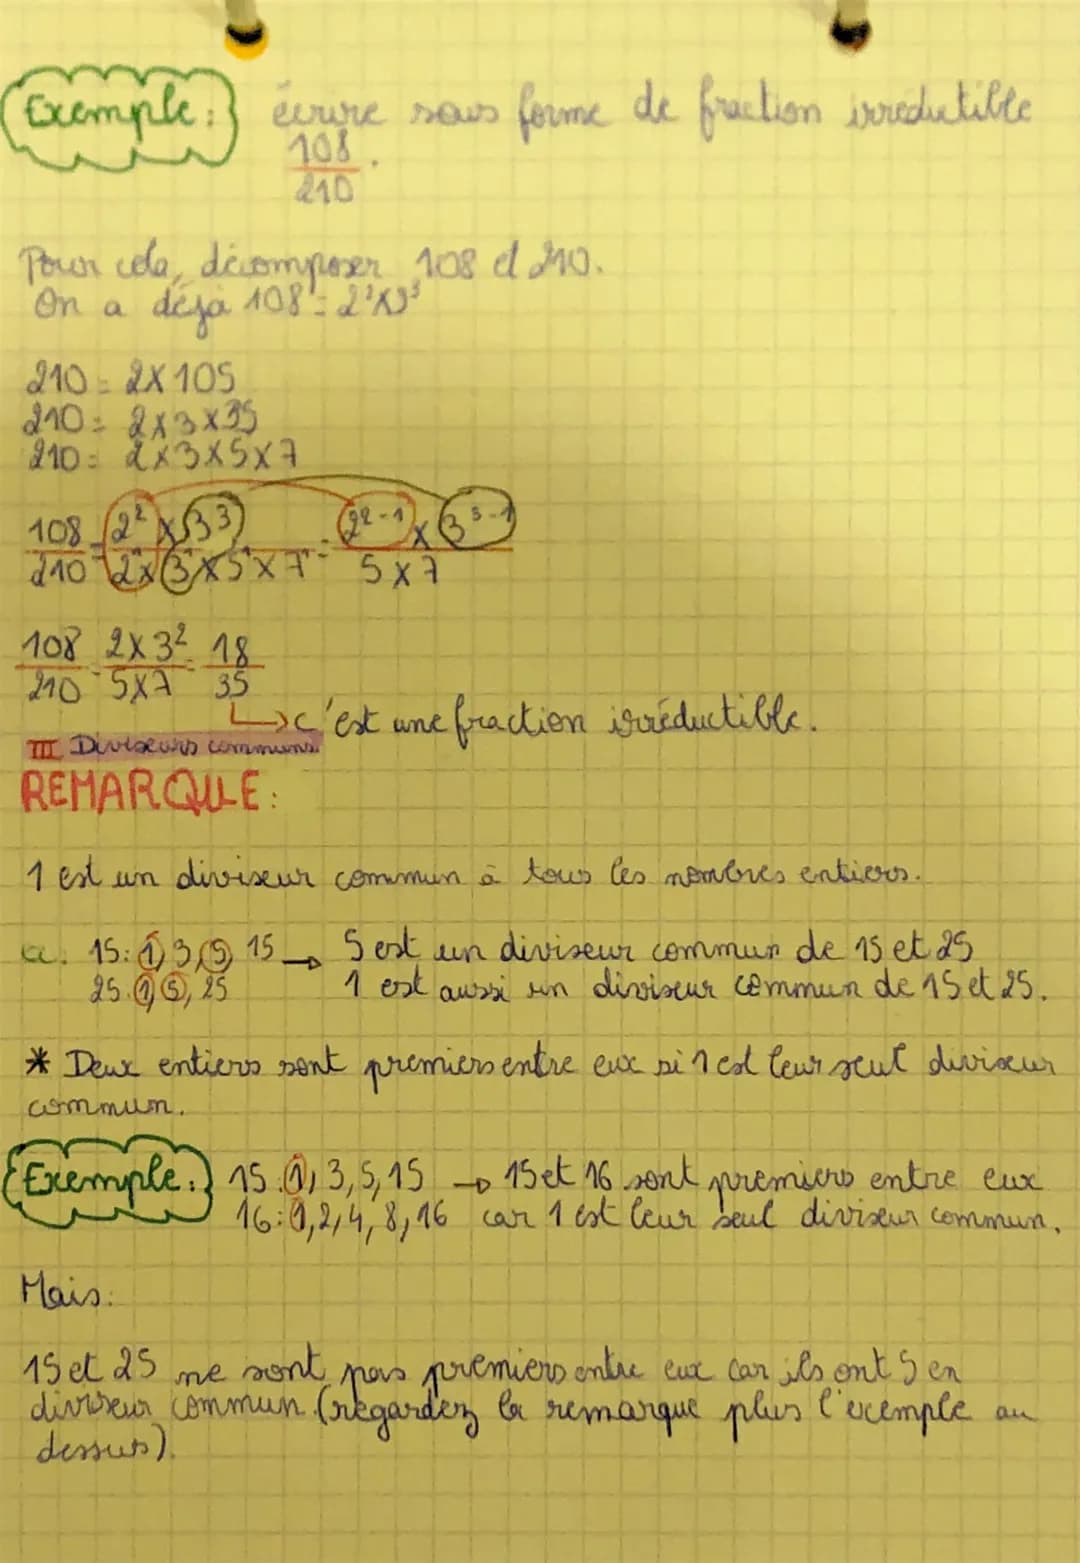 Exemple: écrire sous forme de fraction irréductible
108/210.
Pour cela, décomposer 108 et 210.
On a déjà 108 = 2²x3³
210 = 2x105
210 = 2x3x35
210 = 2x3x5x7
108/210 = 2² x 3³ / 2¹ x 3¹ x 5¹ x 7¹ = 2²⁻¹ x 3³⁻¹ / 5x7
108/210 = 2x3²/5x7 = 18/35
↳ c'est une fraction irréductible.
III Diviseurs communs
REMARQUE:
1 est un diviseur commun à tous les nombres entiers.
15: 1, 3, 5, 15 → 5 est un diviseur commun de 15 et 25
25: 1, 5, 25 1 est aussi un diviseur commun de 15 et 25.
* Deux entiers sont premiers entre eux si 1 est leur seul diviseur
commun.
Exemple: 15: 1, 3, 5, 15 → 15 et 16 sont premiers entre eux
16: 1, 2, 4, 8, 16 car 1 est leur seul diviseur commun.
Mais:
15 et 25 ne sont pas premiers entre eux car ils ont 5 en
diviseur commun (regardez la remarque plus l'exemple au
dessus).